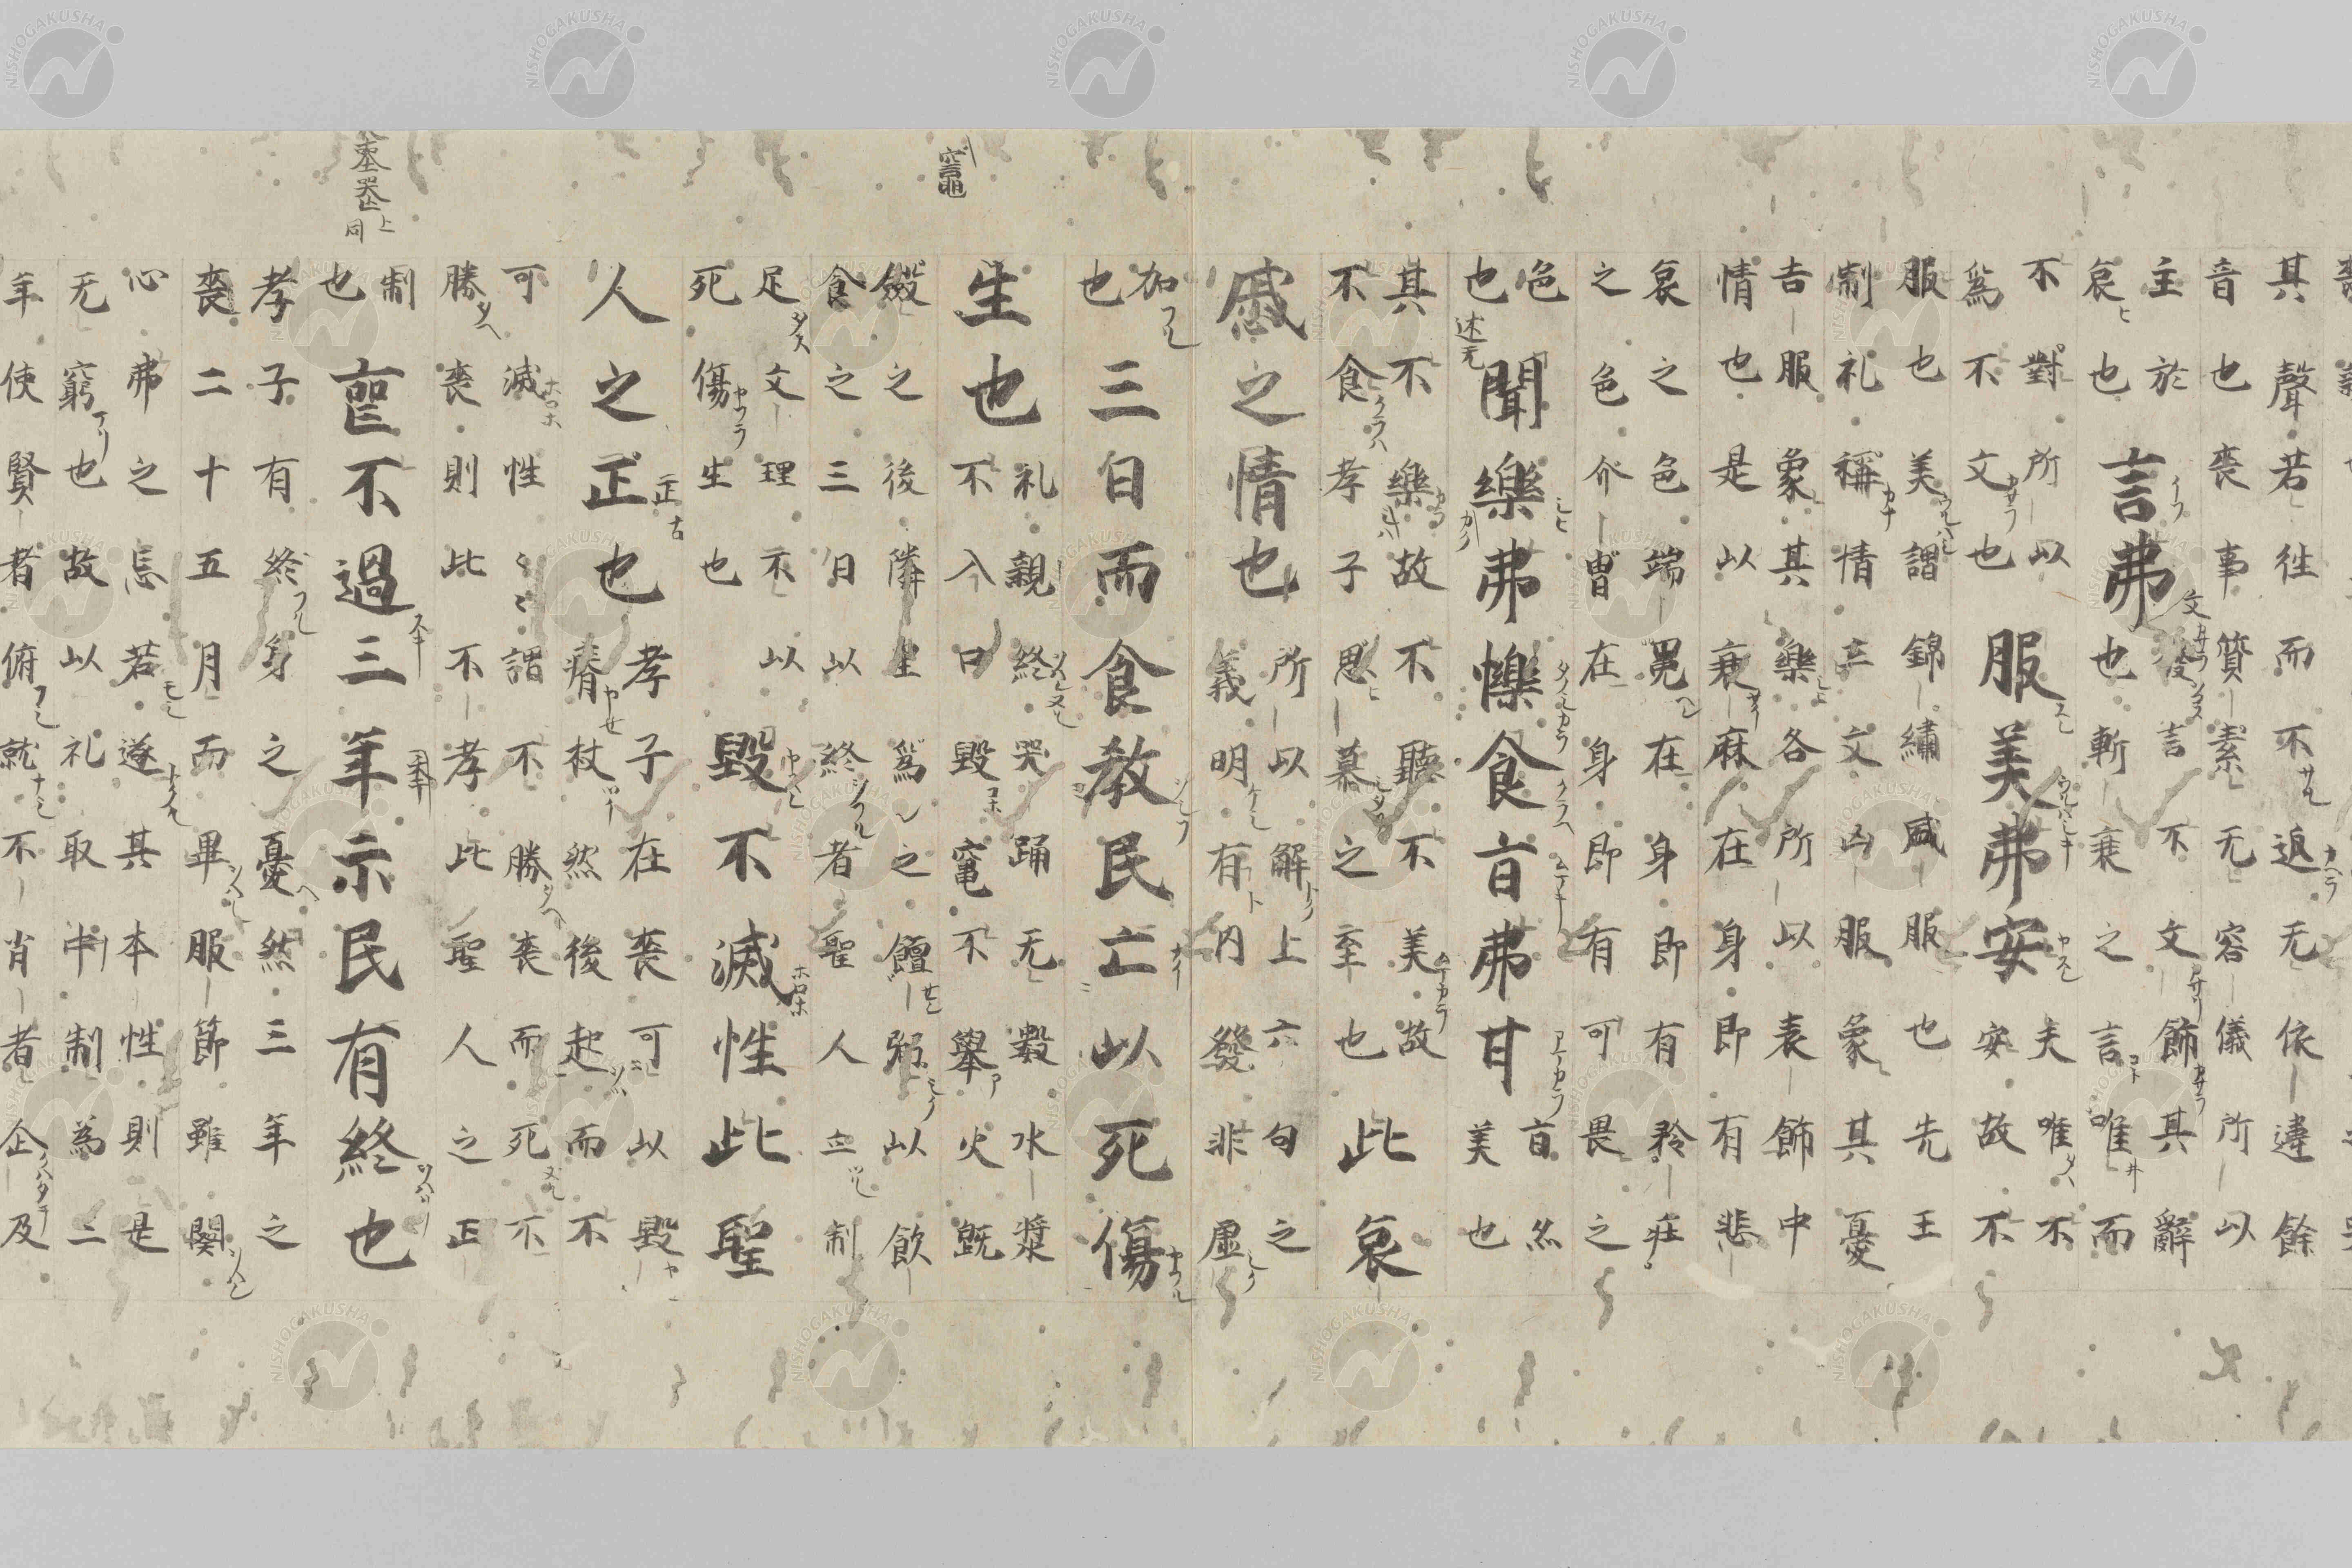 其聲若往而不返无依違餘
音也喪事質素无容儀所以
主於
哀也
言弗文
發言不文飾其辭
也斬衰之言唯而
不對所以
為不文也
服美弗安
夫唯不
安故不
服也美謂錦繡盛服也先王
制礼稱情立文凶服象其憂
吉服象其樂各所以表飾中
情也是以衰麻在身即有悲
哀之色端冕在身即有矜莊
之色介冑在身即有可畏之
色
也
聞樂弗懌食旨弗甘
旨亦
美也
其不樂故不聽不美故
不食孝子思慕之至也
此哀
戚之情也
所以解上六句之
義明有内發非虛
加
也
三日而食教民亡以死傷
生也
礼親終哭踊无數水漿
不入口毀竃不舉火既
斂之後隣里為之饘粥以飲
食之三日以終者聖人立制
足文理不以
死傷生也
毀不滅性此聖
人之正也
孝子在喪可以毀
瘠杖然後起而不
可滅性〻〻謂不勝喪而死不
勝喪則此不孝此聖人之正
制
也
喪不過三年示民有終也
孝子有終身之憂然三年之
喪二十五月而畢服節雖闋
心弗之忘若遂其本性則是
无窮也故以礼取中制為三
年使賢者俯就不肖者企及